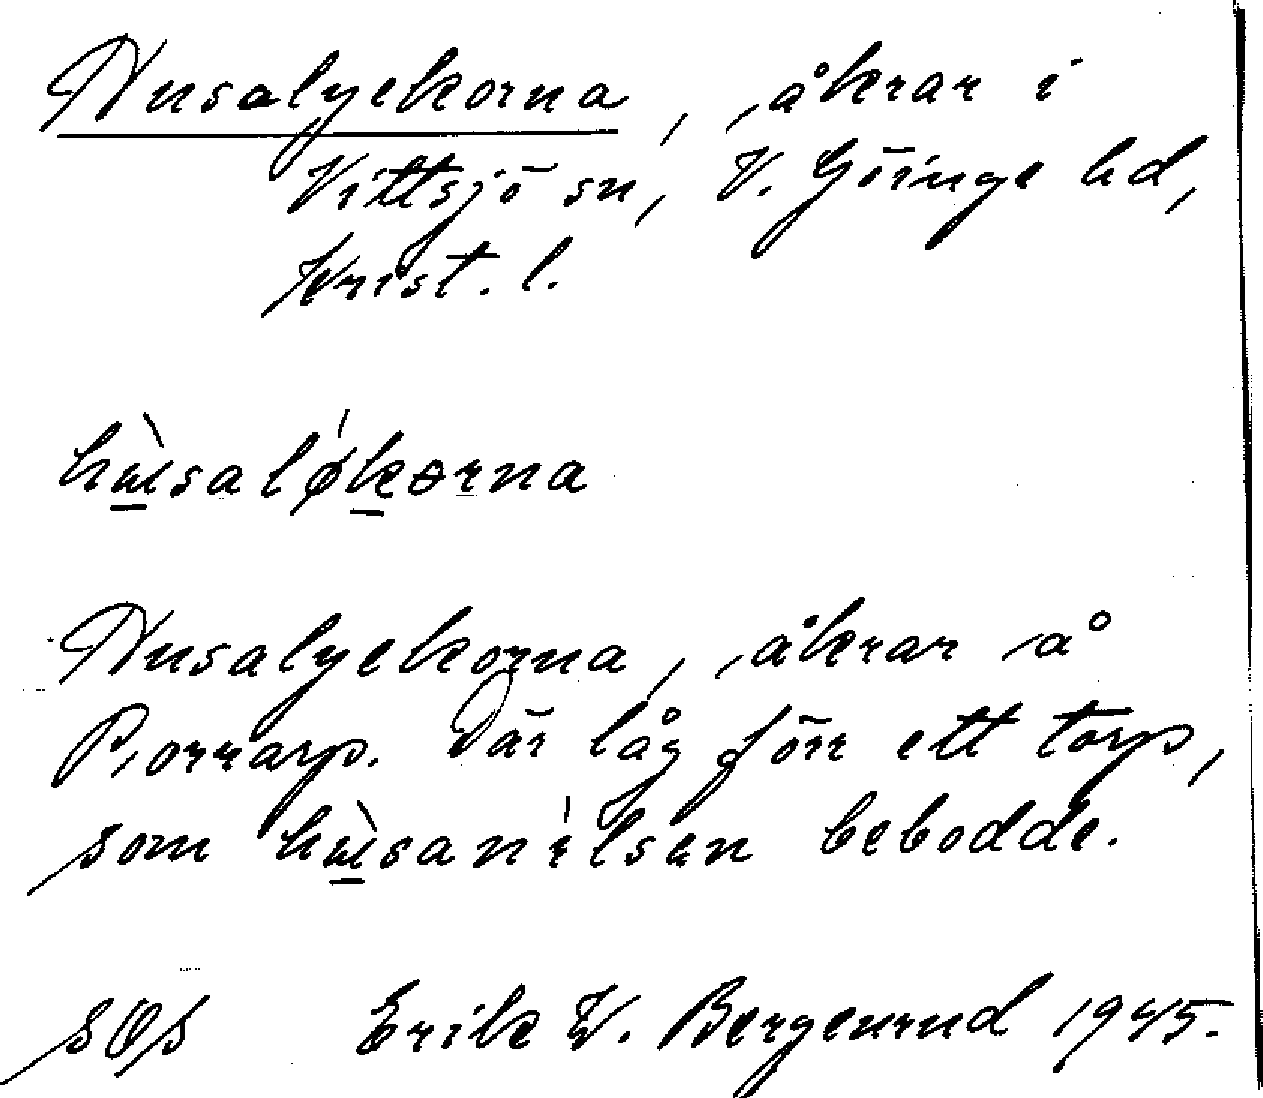 Husalyckorna, åkrar i
Vittsjö sn, V. Göinge hd,
Krist. l.
hùsaløkorna
Husalyckorna, åkrar å
Pjorrarp. Där låg förr ett torp,
som hùsanilsen bebodde.
SOS Erik W. Bergenrud 1945.